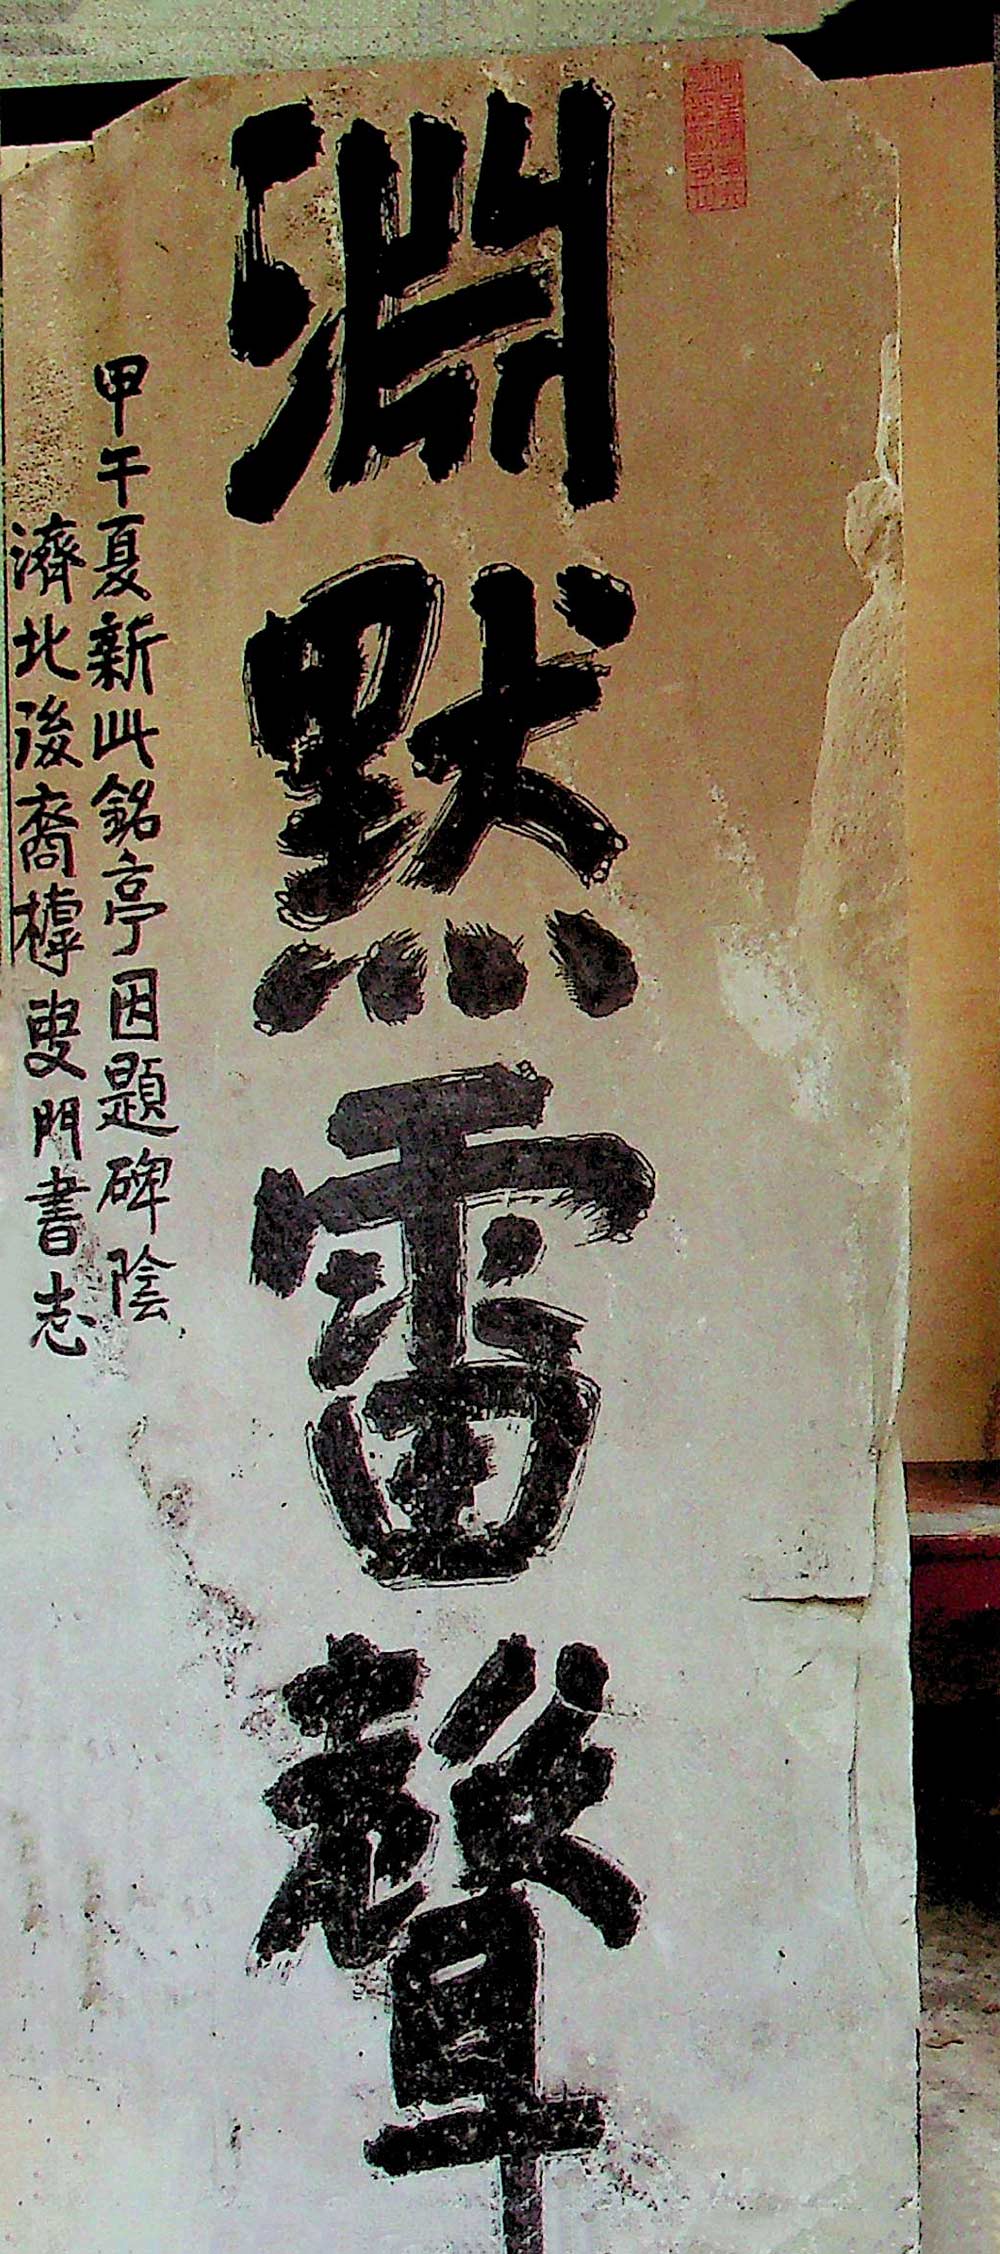 淵黙雷聲
甲午夏新此銘亭因題碑陰
濟北後裔樗叟門書志